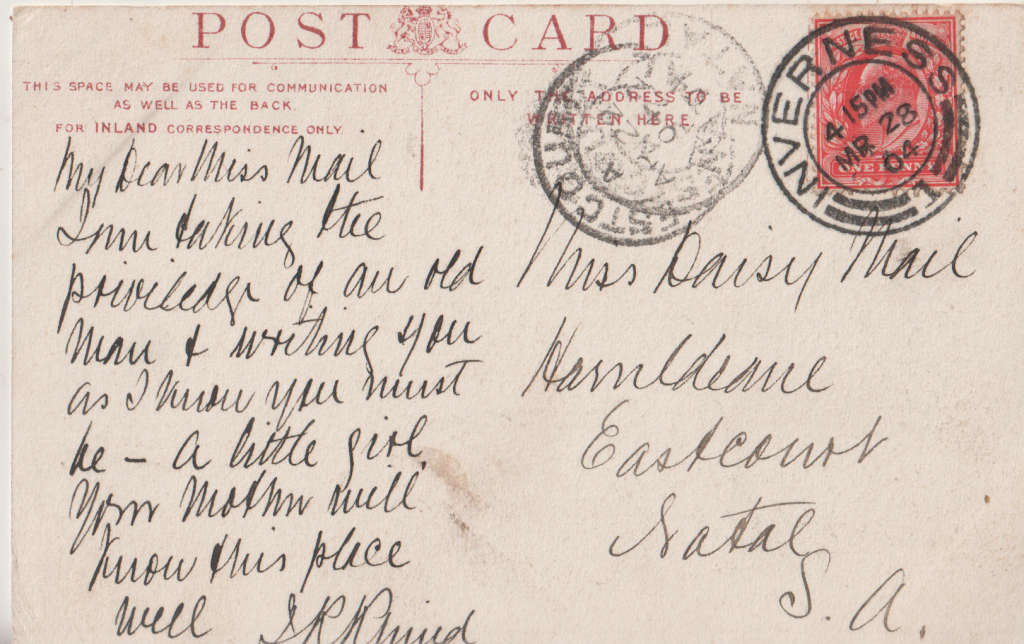 POST CARD
THIS SPACE MAY BE USED FOR COMMUNICATION
AS WELL AS THE BACK.
FOR INLAND CORRESPONDENCE ONLY
ONLY THE ADDRESS TO BE
WRITTEN HERE.
INVERNESS
4 15 PM
MR 28
04
1
ONE PENNY
My Dear Miss Mail
I am taking the
priviledge of an old
man & writing you
as I know you must
be – a little girl.
Your Mother will
know this place
well
Miss Daisy Mail
Eastcourt
Natal
S. A.